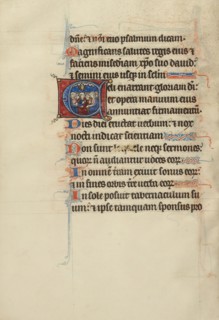 dñe: & noı tuo psalmum dicam.
Magnificans salutes regis eius &
faciens miſcdiam xp̃o suo dauid:
& semini eius usq; in sclm
Celi enarrant gloriam di:
et opera manuum eius
annunciat firmamentum.
Dies diei eructat uerbum: & nox
nocti indicat scientiam
Non sunt loquele neq; sermones:
quor̃ ñ audiantur uoces eor̃
In omnē tram exiuit sonus eor̃:
& in fines orbis tr̃e uerba eor̃
In sole posuit tabernaculum su
um: & ipse tamquam sponsus pro